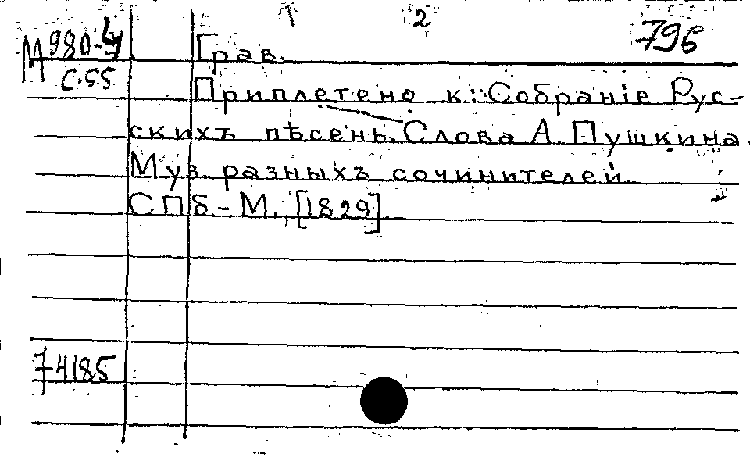 1 2 796
М 980-4
С.55
Грав.
Приплетено к: Собраніе Рус-
скихъ пѣсень. Слова А. Пушкина.
Муз разныхъ сочинителей
СПб-М. [1829]
74185